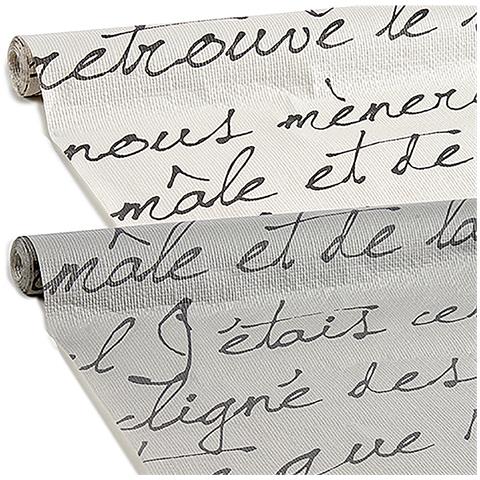 retrouvè le
nous mèner
mâle et de
mâle et de la
J'étais ce
ligné des
que